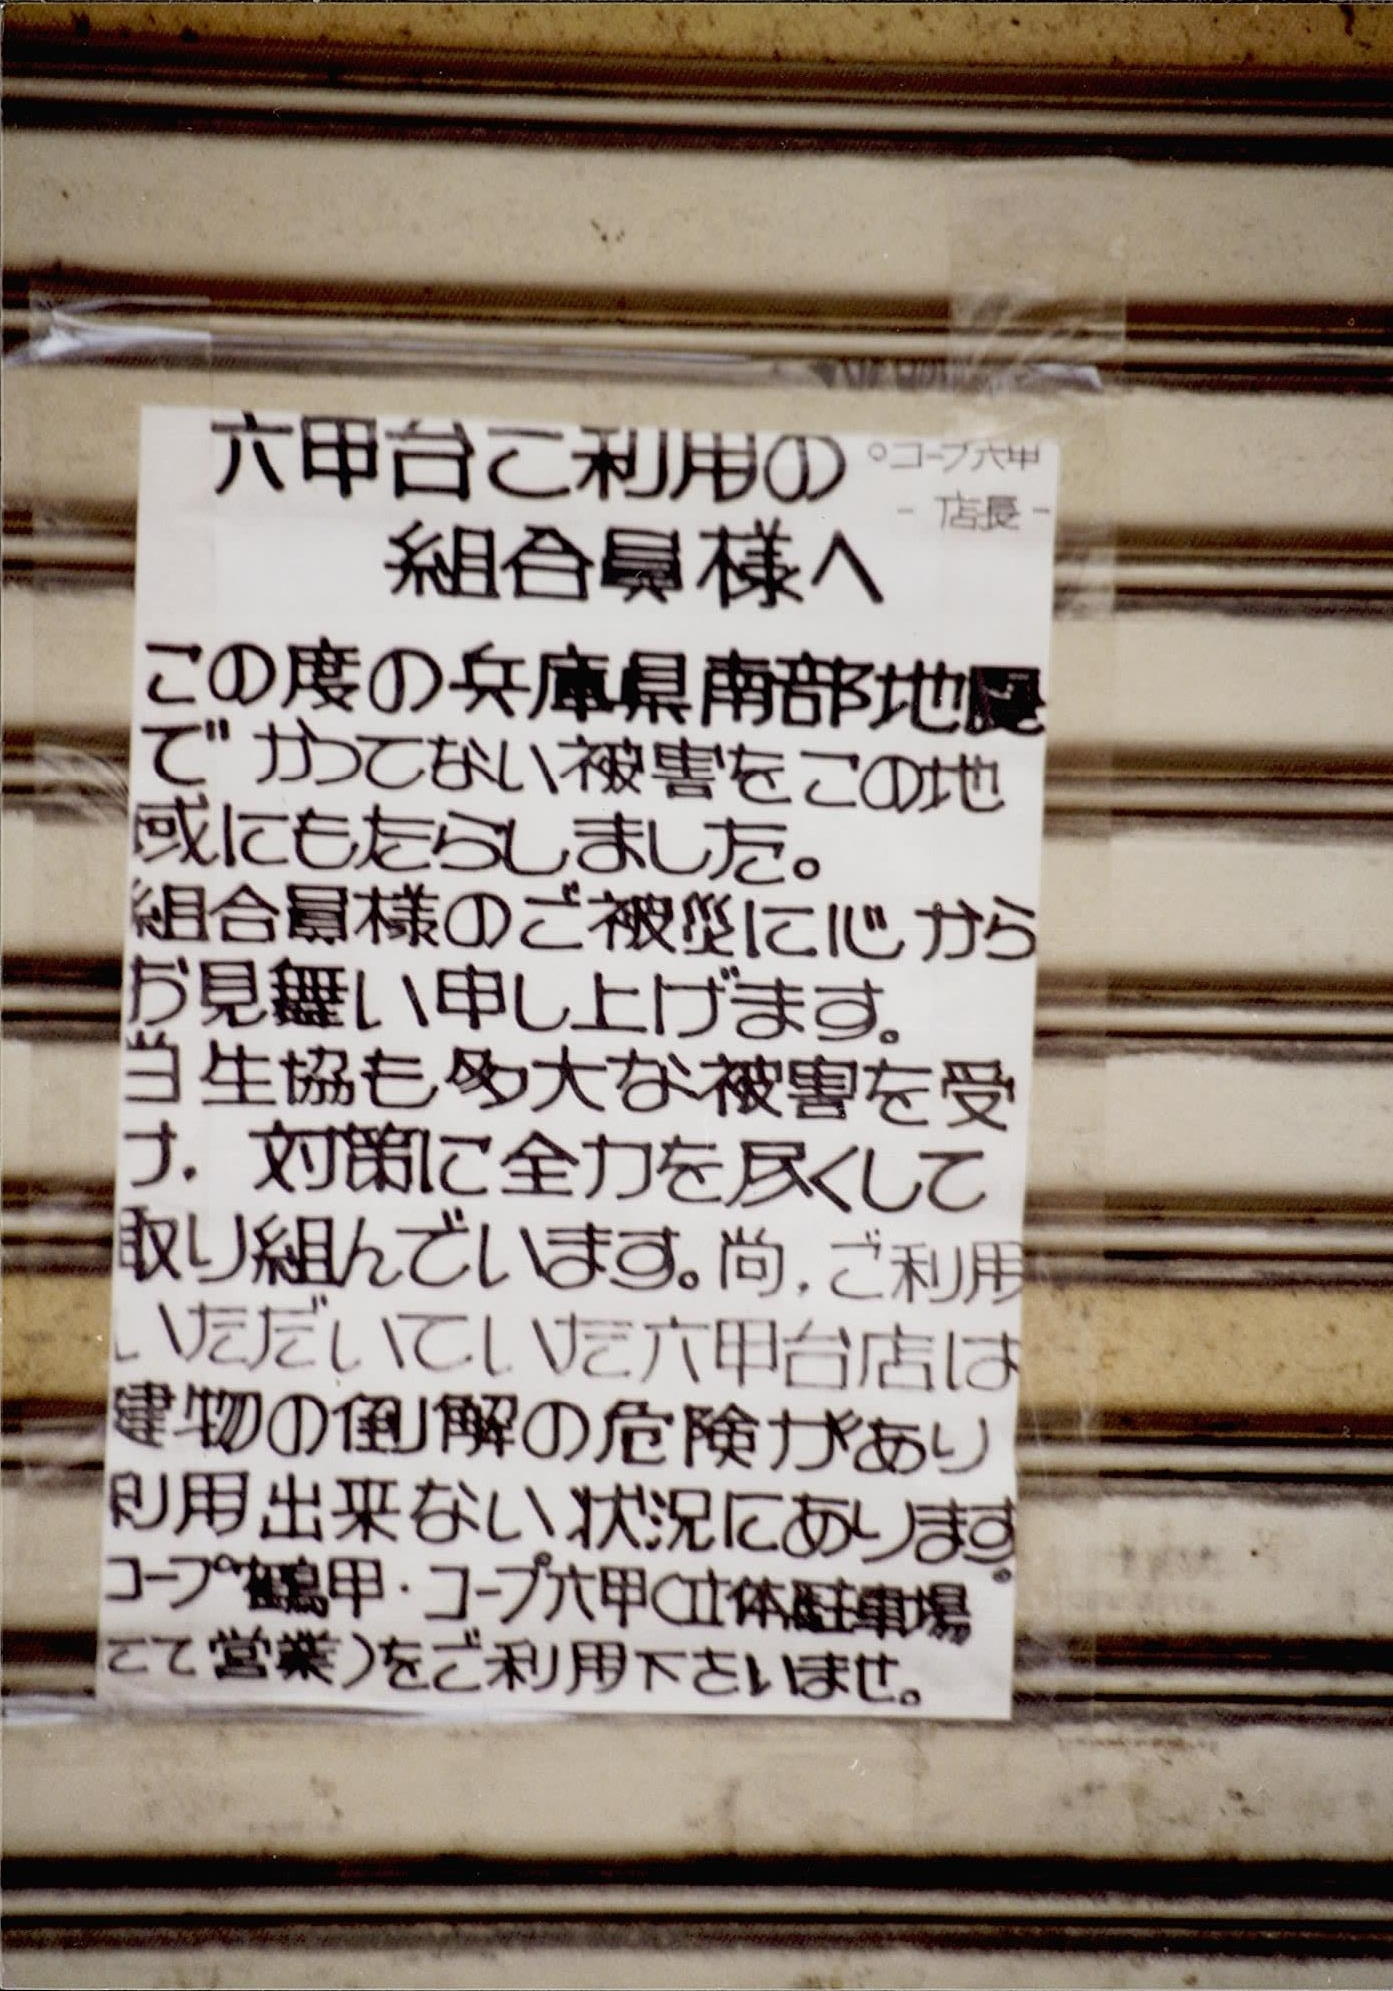 六甲台ご利用の
。コープ六甲
- 店長 -
組合員様へ
この度の兵庫県南部地震
で かつてない被害をこの地
域にもたらしました。
組合員様のご被災に心から
お見舞い申し上げます。
当生協も多大な被害を受
け、対策に全力を尽くして
取り組んでいます。尚、ご利用
いただいていた六甲台店は
建物の倒解の危険があり
利用出来ない状況にあります。
コープ鶴甲・コープ六甲(立体駐車場
にて営業)をご利用下さいませ。